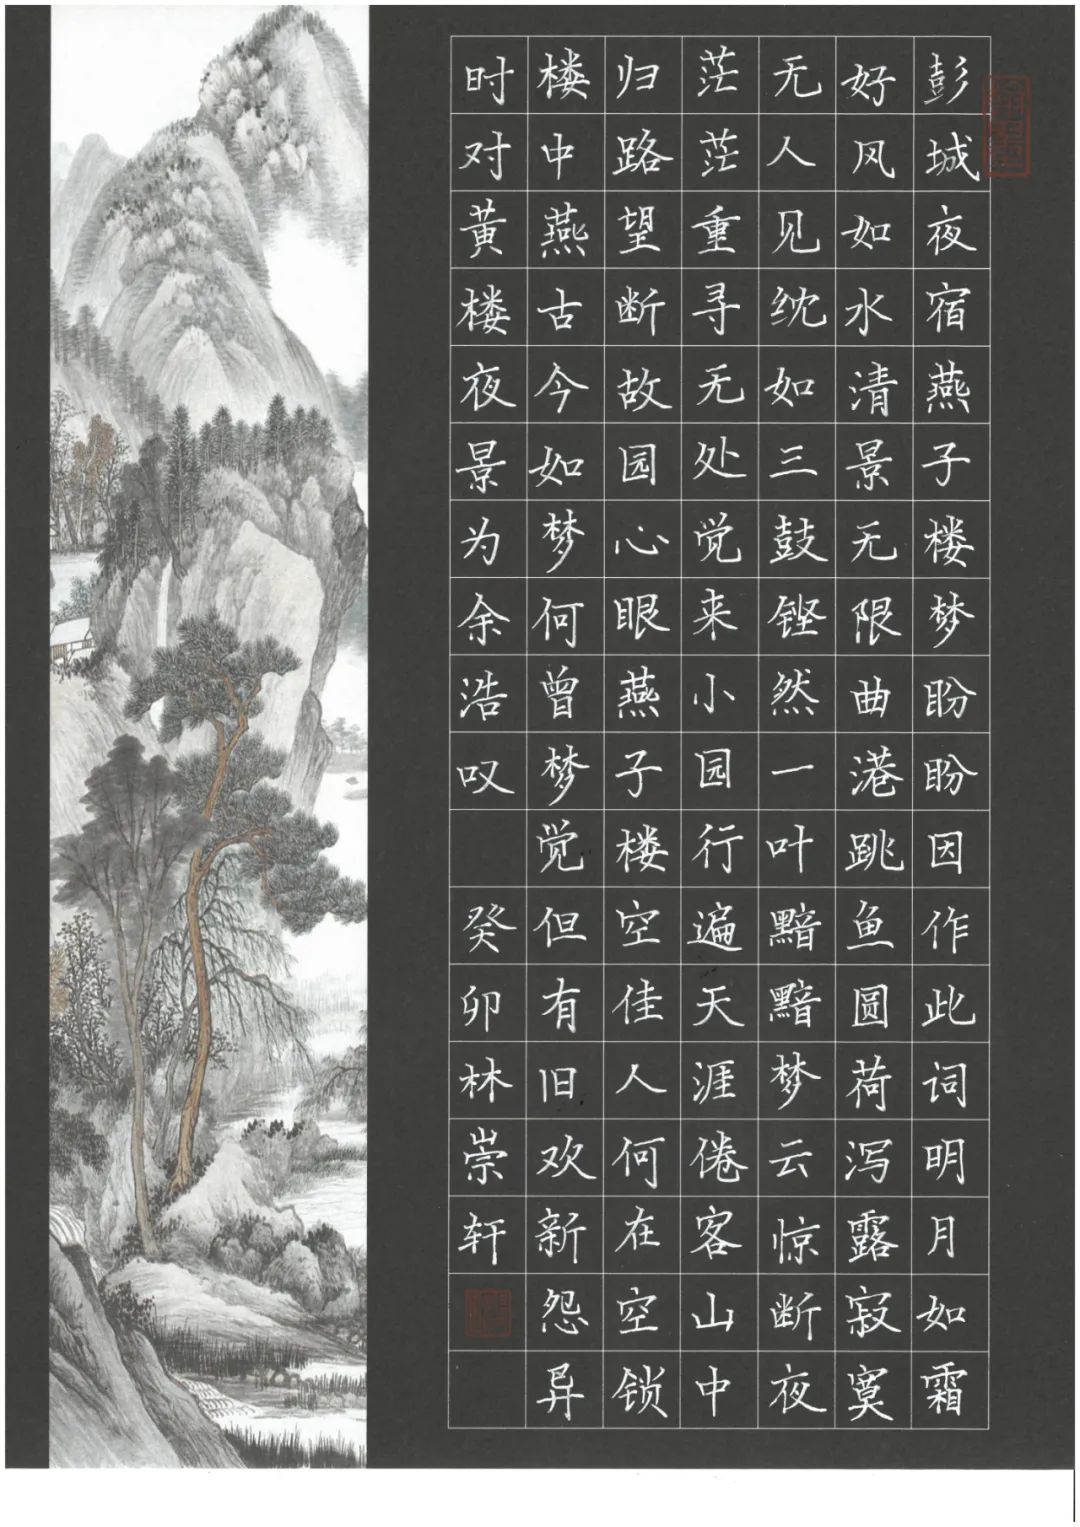 彭城夜宿燕子楼梦盼盼因作此词明月如霜
好风如水清景无限曲港跳鱼圆荷泻露寂寞
无人见紞如三鼓铿然一叶黯黯梦云惊断夜
茫茫重寻无处觉来小园行遍天涯倦客山中
归路望断故园心眼燕子楼空佳人何在空锁
楼中燕古今如梦何曾梦觉但有旧欢新怨异
时对黄楼夜景为余浩叹
癸卯林崇轩